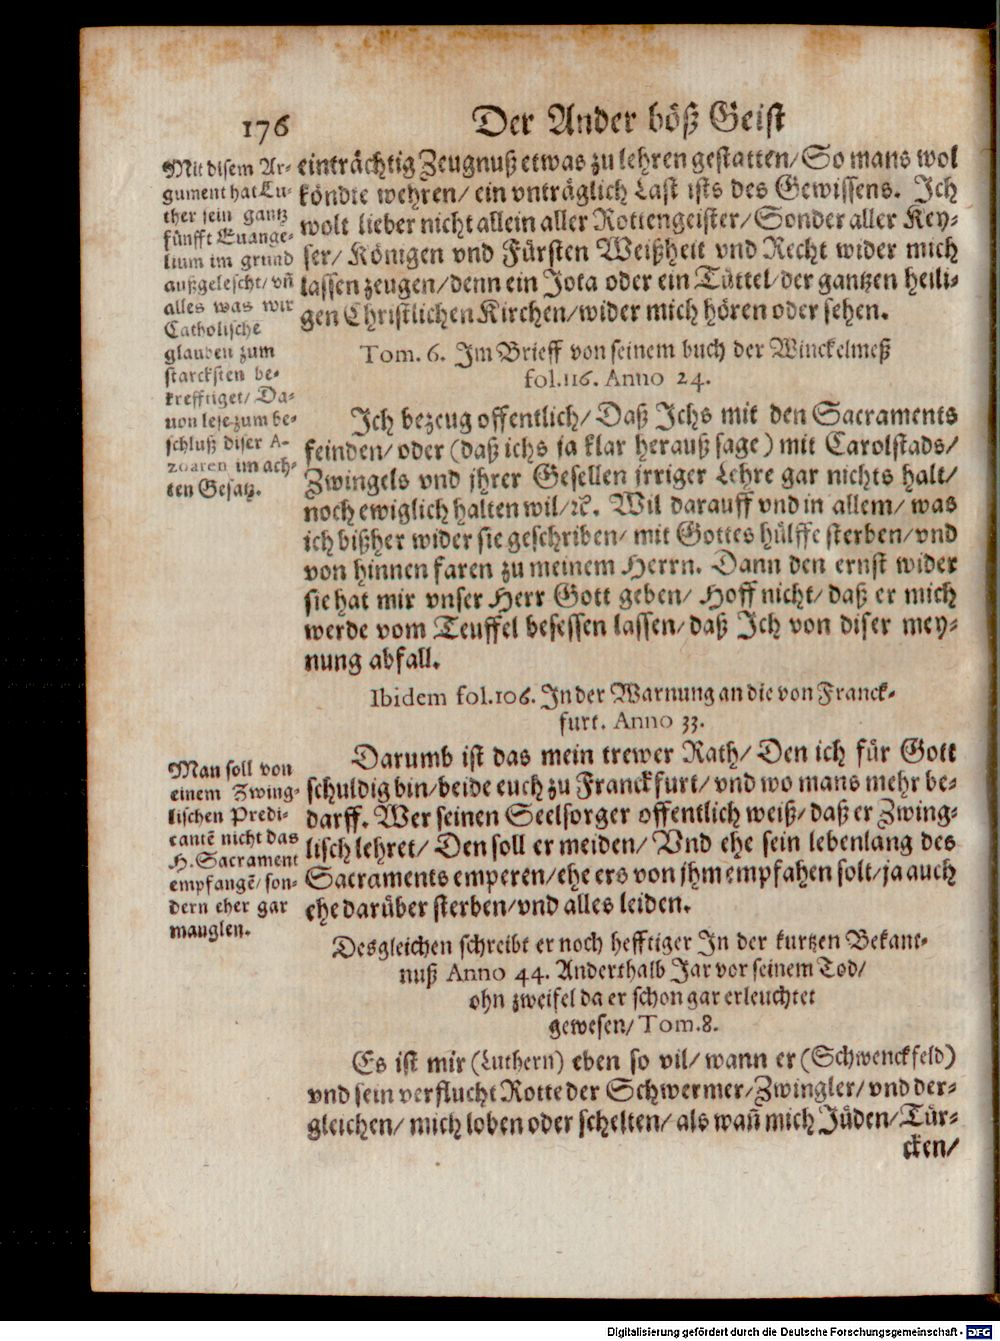 176
Der Ander böß Geist
Mit disem Ar-
gument hat Lu-
ther sein gantz
fünfft Euange-
lium im grund
außgelescht/ vñ
alles was wir
Catholische
glauben zum
starcksten be-
krefftiget/ Da-
uon lese zum be-
schluß diser A-
zoaren im ach-
ten Gesatz.
einträchtig Zeugnuß etwas zu lehren gestatten/ So mans wol
köndte wehren/ ein vnträglich Last ists des Gewissens. Ich
wolt lieber nicht allein aller Rottengeister/ Sonder aller Key-
ser/ Königen vnd Fürsten Weißheit vnd Recht wider mich
lassen zeugen/ denn ein Jota oder ein Tüttel/ der gantzen heili-
gen Christlichen Kirchen/ wider mich hören oder sehen.
Tom. 6. Im Brieff von seinem buch der Winckelmeß
fol.116. Anno 24.
Ich bezeug offentlich/ Daß Ichs mit den Sacraments
feinden/ oder (daß ichs ja klar herauß sage) mit Carolstads/
Zwingels vnd jhrer Gesellen jrriger Lehre gar nichts halt/
noch ewiglich halten wil/ ꝛc. Wil darauff vnd in allem/ was
ich bißher wider sie geschriben/ mit Gottes hülffe sterben/ vnd
von hinnen faren zu meinem Herrn. Dann den ernst wider
sie hat mir vnser Herr Gott geben/ Hoff nicht/ daß er mich
werde vom Teuffel besessen lassen/ daß Ich von diser mey-
nung abfall.
Ibidem fol.106. In der Warnung an die von Franck-
furt. Anno 33.
Man soll von
einem Zwing-
lischen Predi-
cantē nicht das
H. Sacrament
empfangē/ son-
dern eher gar
manglen.
Darumb ist das mein trewer Rath/ Den ich für Gott
schuldig bin/ beide euch zu Franckfurt/ vnd wo mans mehr be-
darff. Wer seinen Seelsorger offentlich weiß/ daß er Zwing-
lisch lehret/ Den soll er meiden/ Vnd ehe sein lebenlang des
Sacraments emperen/ ehe ers von jhm empfahen solt/ ja auch
ehe darüber sterben/ vnd alles leiden.
Desgleichen schreibt er noch hefftiger In der kurtzen Bekant-
nuß Anno 44. Anderthalb Jar vor seinem Tod/
ohn zweifel da er schon gar erleuchtet
gewesen/ Tom.8.
Es ist mir (Luthern) eben so vil/ wann er (Schwenckfeld)
vnd sein verflucht Rotte der Schwermer/ Zwingler/ vnd der-
gleichen/ mich loben oder schelten/ als wañ mich Jüden/ Tür-
cken/
Digitalisierung gefördert durch die Deutsche Forschungsgemeinschaft - DFG